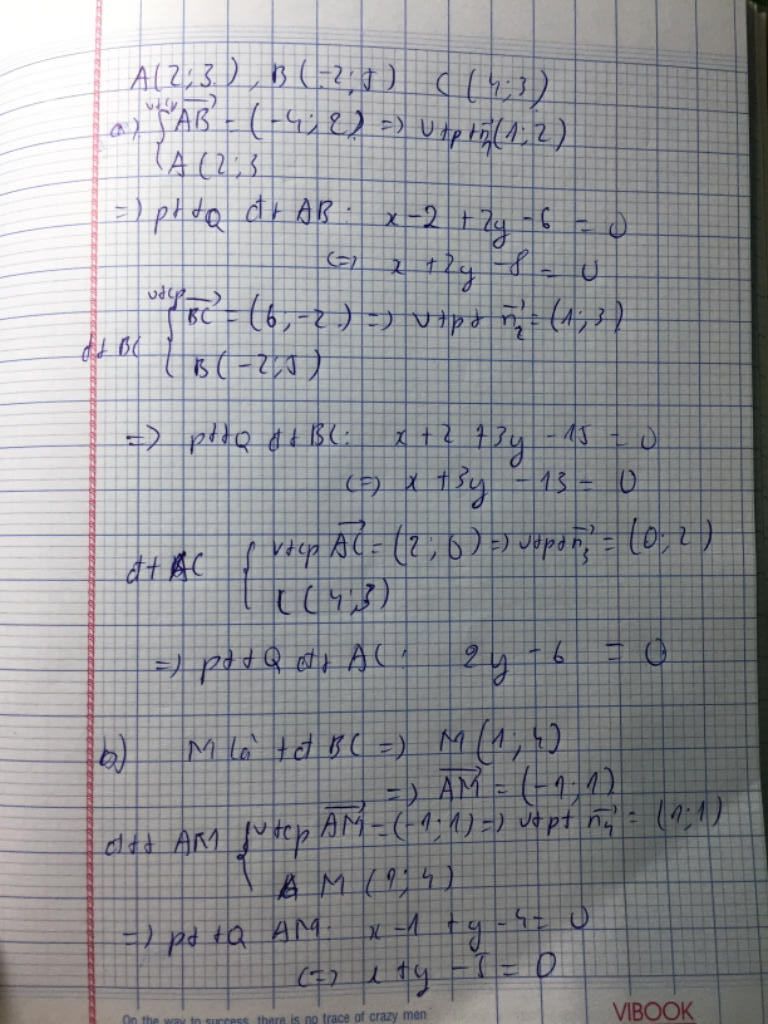 A(2;3), B(-2;5) C(4;3)
a) { vtcp AB = (-4; 2) => vtpt n1(1; 2)
A(2;3
=> pttQ đt AB: x-2 + 2y - 6 = 0
<=> x + 2y - 8 = 0
vtcp BC = (6; -2) => vtpt n2 = (1; 3)
đt BC {
B(-2;5)
=> pttQ đt BC: x + 2 + 3y - 15 = 0
<=> x + 3y - 13 = 0
đt AC { vtcp AC = (2; 0) => vtpt n3 = (0; 2)
C(4;3)
=> pttQ đt AC: 2y - 6 = 0
b) M là tđ BC => M(1; 4)
=> AM = (-1; 1)
đtt AM { vtcp AM = (-1; 1) => vtpt n4 = (1; 1)
M(1; 4)
=> pttQ AM: x - 1 + y - 4 = 0
<=> x + y - 5 = 0
On the way to success, there is no trace of crazy men
VIBOOK